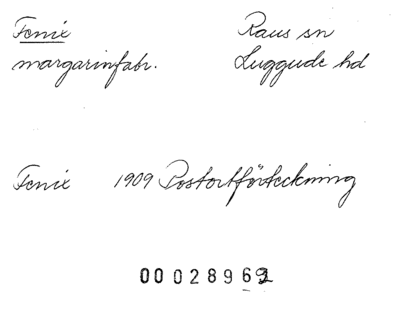 Fenix Raus sn
margarinfabr. Luggude hd
Fenix 1909 Postortförteckning
0002896